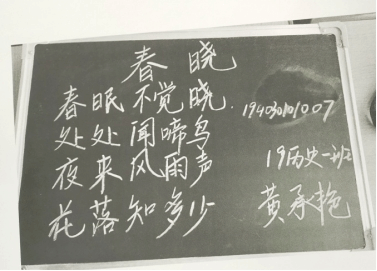 春晓
春眠不觉晓.
处处闻啼鸟
夜来风雨声
花落知多少
194030101007
19历史一班
黄承艳